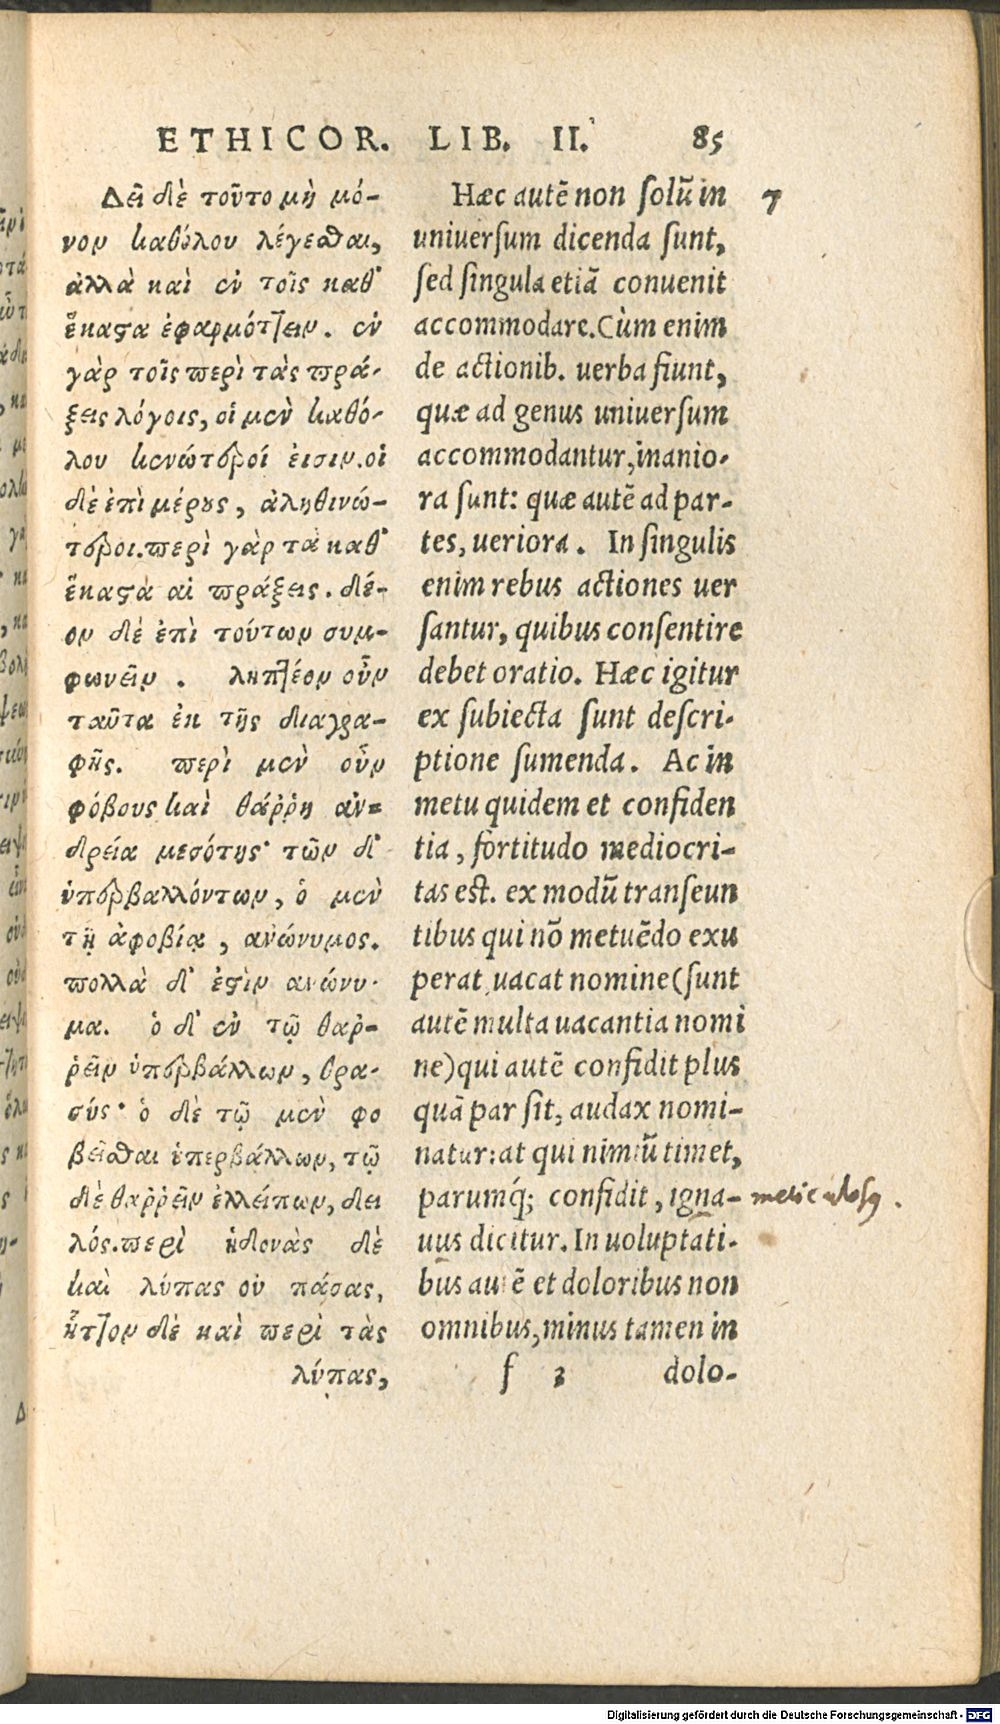 ETHICOR. LIB. II. 85
Δεῖ δὲ τοῦτο μὴ μό-
νον καθόλου λέγεσθαι,
ἀλλὰ καὶ ἐν τοῖς καθ'
ἕκαστα ἐφαρμόττειν. ἐν
γὰρ τοῖς περὶ τὰς πρά-
ξεις λόγοις, οἱ μὲν καθό-
λου κενώτεροί εἰσιν. οἱ
δὲ ἐπὶ μέρους, ἀληθινώ-
τεροι. περὶ γὰρ τὰ καθ'
ἕκαστα αἱ πράξεις. δέ-
ον δὲ ἐπὶ τούτων συμ-
φωνεῖν. ληπτέον οὖν
ταῦτα ἐκ τῆς διαγρα-
φῆς. περὶ μὲν οὖν
φόβους καὶ θάῤῥη ἀν-
δρεία μεσότης· τῶν δ'
ὑπερβαλλόντων, ὁ μὲν
τῇ ἀφοβίᾳ, ἀνώνυμος.
πολλὰ δ' ἐστὶν ἀνώνυ-
μα. ὁ δ' ἐν τῷ θαρ-
ῥεῖν ὑπερβάλλων, θρα-
σύς· ὁ δὲ τῷ μὲν φο
βεῖσθαι ὑπερβάλλων, τῷ
δὲ θαῤῥεῖν ἐλλείπων, δει
λός. περὶ ἡδονὰς δὲ
καὶ λύπας οὐ πάσας,
ἧττον δὲ καὶ περὶ τὰς
λύπας,
Hæc autẽ non ſolũ in 7
uniuerſum dicenda ſunt,
ſed ſingula etiã conuenit
accommodare. Cùm enim
de actionib. uerba fiunt,
quæ ad genus uniuerſum
accommodantur, inanio-
ra ſunt: quæ autẽ ad par-
tes, ueriora. In ſingulis
enim rebus actiones uer
ſantur, quibus conſentire
debet oratio. Hæc igitur
ex ſubiecta ſunt deſcri-
ptione ſumenda. Ac in
metu quidem et confiden
tia, fortitudo mediocri-
tas eſt. ex modũ tranſeun
tibus qui nõ metuẽdo exu
perat uacat nomine (ſunt
autẽ multa uacantia nomi
ne) qui autẽ confidit plus
quã par ſit, audax nomi-
natur: at qui nimiũ timet,
parumq́; confidit, igna- meticulosꝯ.
uus dicitur. In uoluptati-
bus autẽ et doloribus non
omnibus, minus tamen in
f 3 dolo-
Digitalisierung gefördert durch die Deutsche Forschungsgemeinschaft - DFG